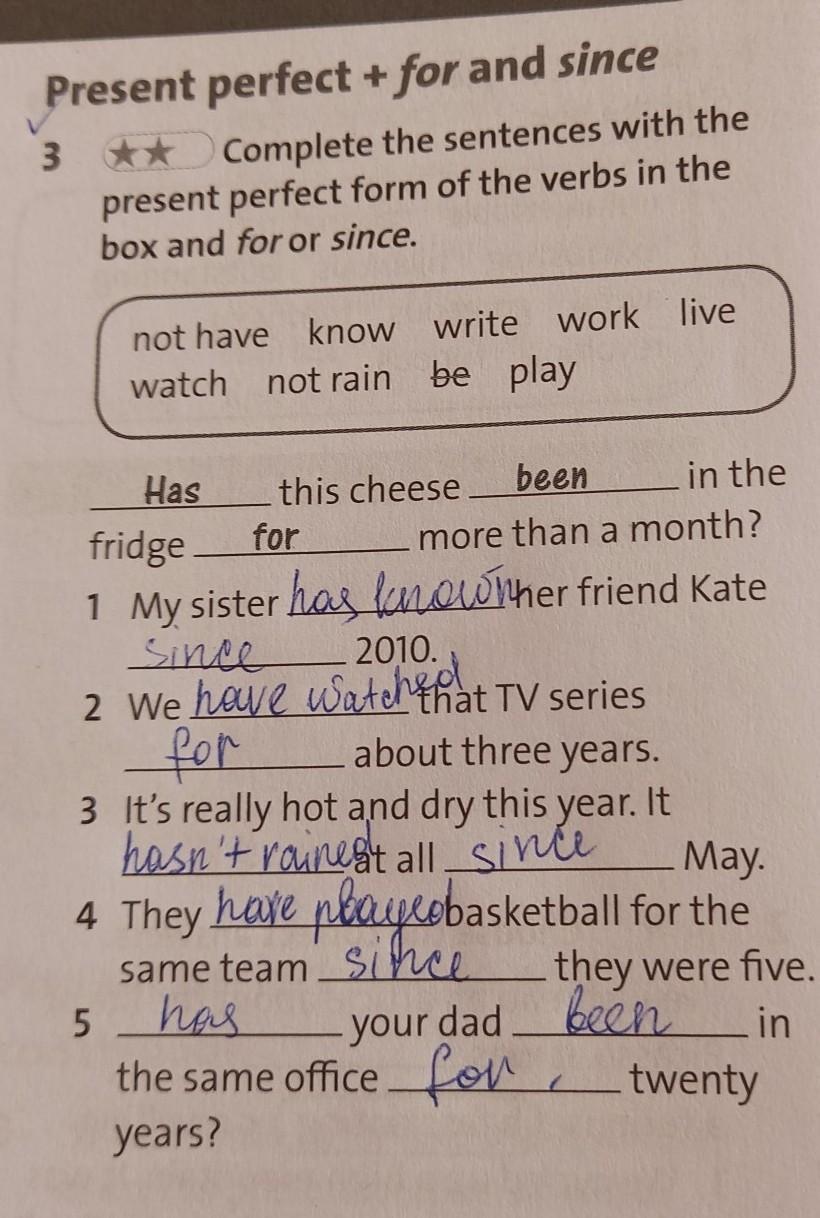 Present perfect + for and since
3 ★★ Complete the sentences with the
present perfect form of the verbs in the
box and for or since.
not have know write work live
watch not rain be play
Has this cheese been in the
fridge for more than a month?
1 My sister has known her friend Kate
since 2010.
2 We have watched that TV series
for about three years.
3 It's really hot and dry this year. It
hasn't rained at all since May.
4 They have played basketball for the
same team since they were five.
5 has your dad been in
the same office for twenty
years?